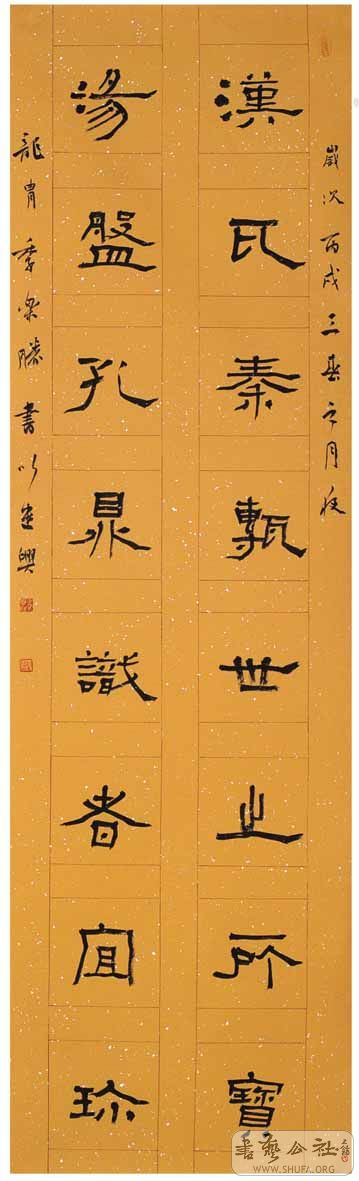 歲次丙戌三春之月夜
漢瓦秦甎世之所寶
湯盤孔鼎識者宜珍
龍胄季樂勝書以遣興
書藝公社
WWW.SHUFA.ORG